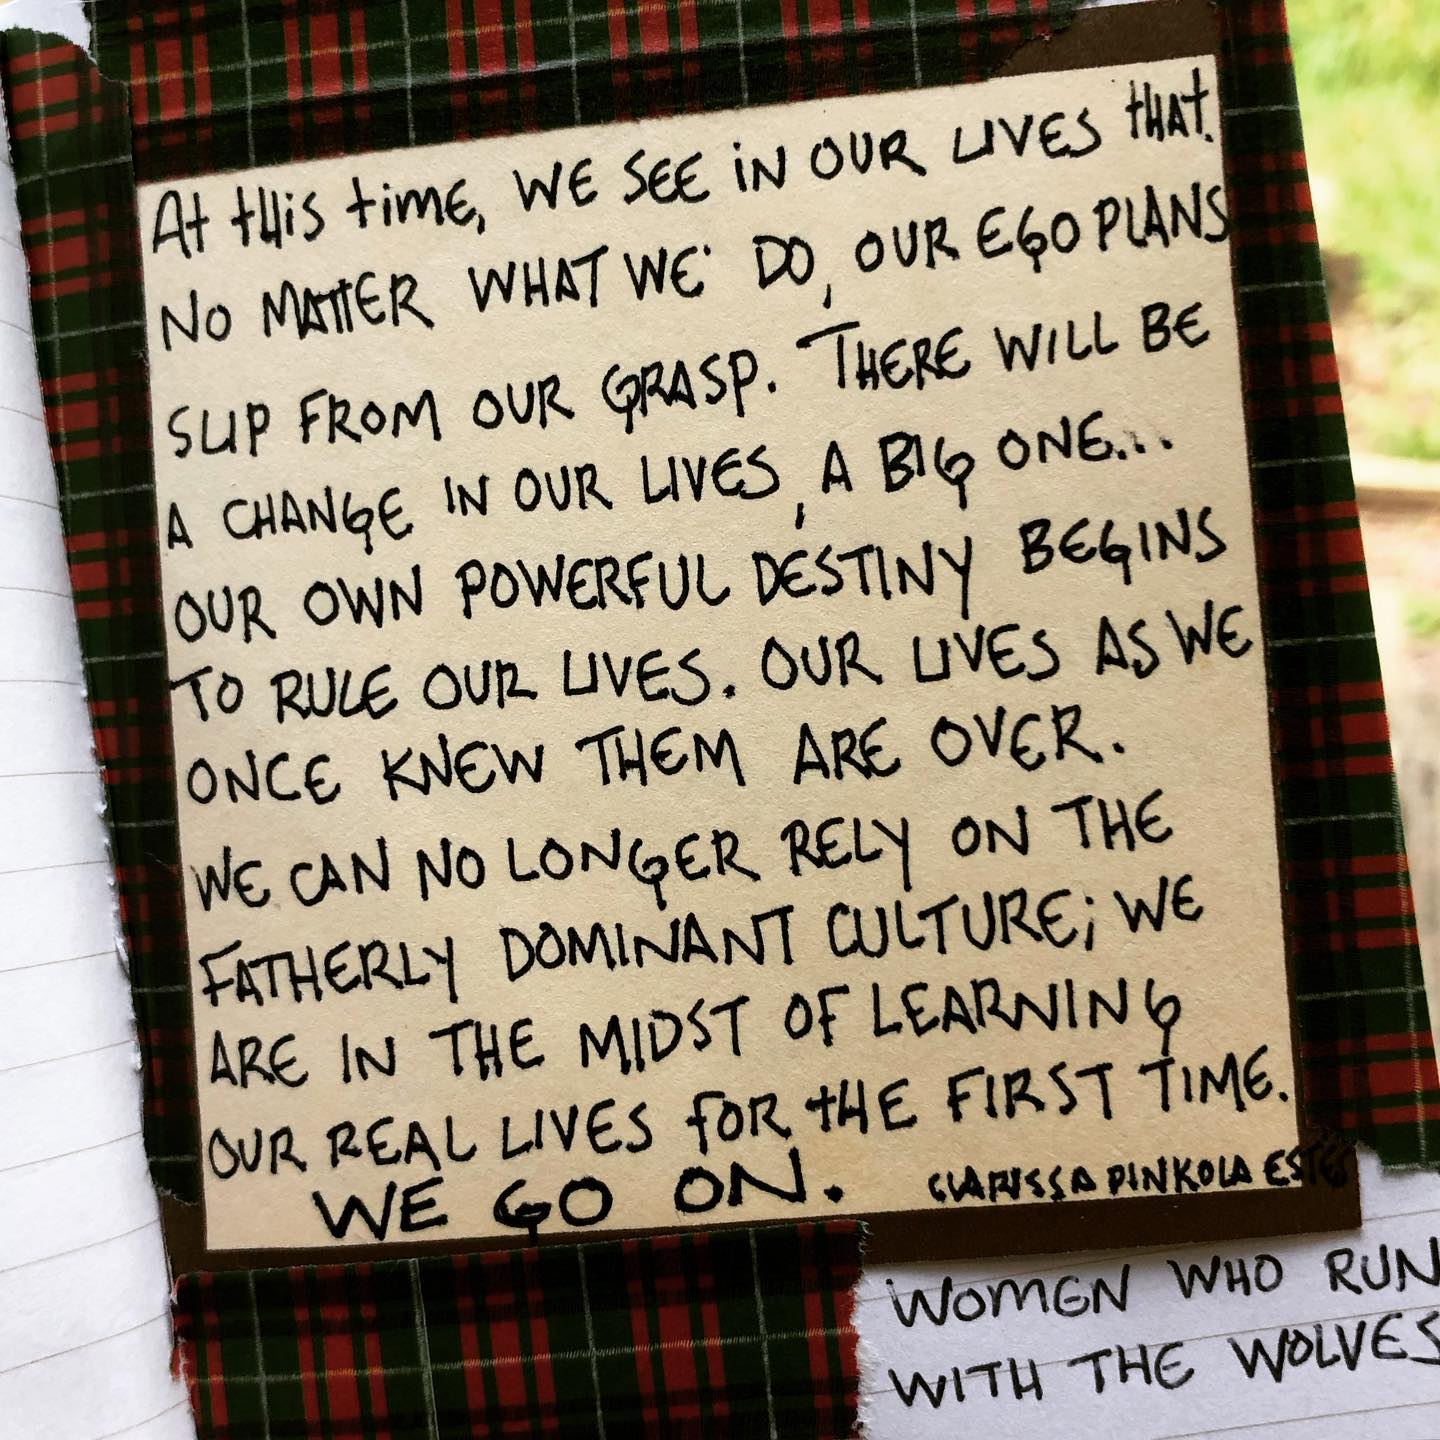 At this time, WE SEE iN OUR LIVES tHAT
NO MATTER WHAT WE DO, OUR EGO PLANS
SLIP FROM OUR GRASP. THERE WILL BE
A CHANGE IN OUR LIVES, A BIG ONE...
OUR OWN POWERFUL DESTINY BEGINS
TO RULE OUR LIVES. OUR LIVES AS WE
ONCE KNEW THEM ARE OVER.
WE CAN NO LONGER RELY ON THE
FATHERLY DOMINANT CULTURE; WE
ARE IN THE MIDST OF LEARNING
OUR REAL LIVES fOR tHE FIRST TIME.
WE GO ON. CLARISSA PINKOLA ESTES
WOMEN WHO RUN
WITH THE WOLVES